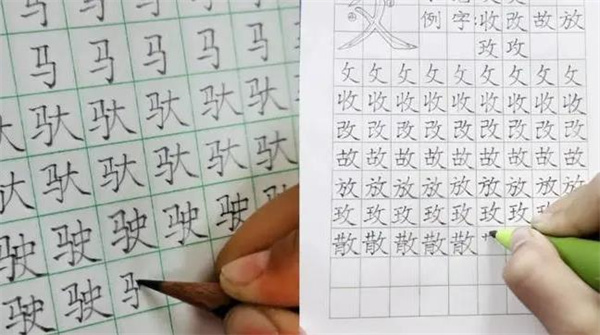 马 马 马 马 马
驮 驮 驮 驮 驮
驮 驮 驮 驮 驮
驶 驶 驶 驶 驶
驶 驶 马
例字:收改故放
玫攻
攵攵攵攵攵攵攵攵攵
收收收收收收收收收
改改改改改改改改改
故故故故故故故故故
放放放放放放放放放
玫玫玫玫玫玫玫
散散散散散